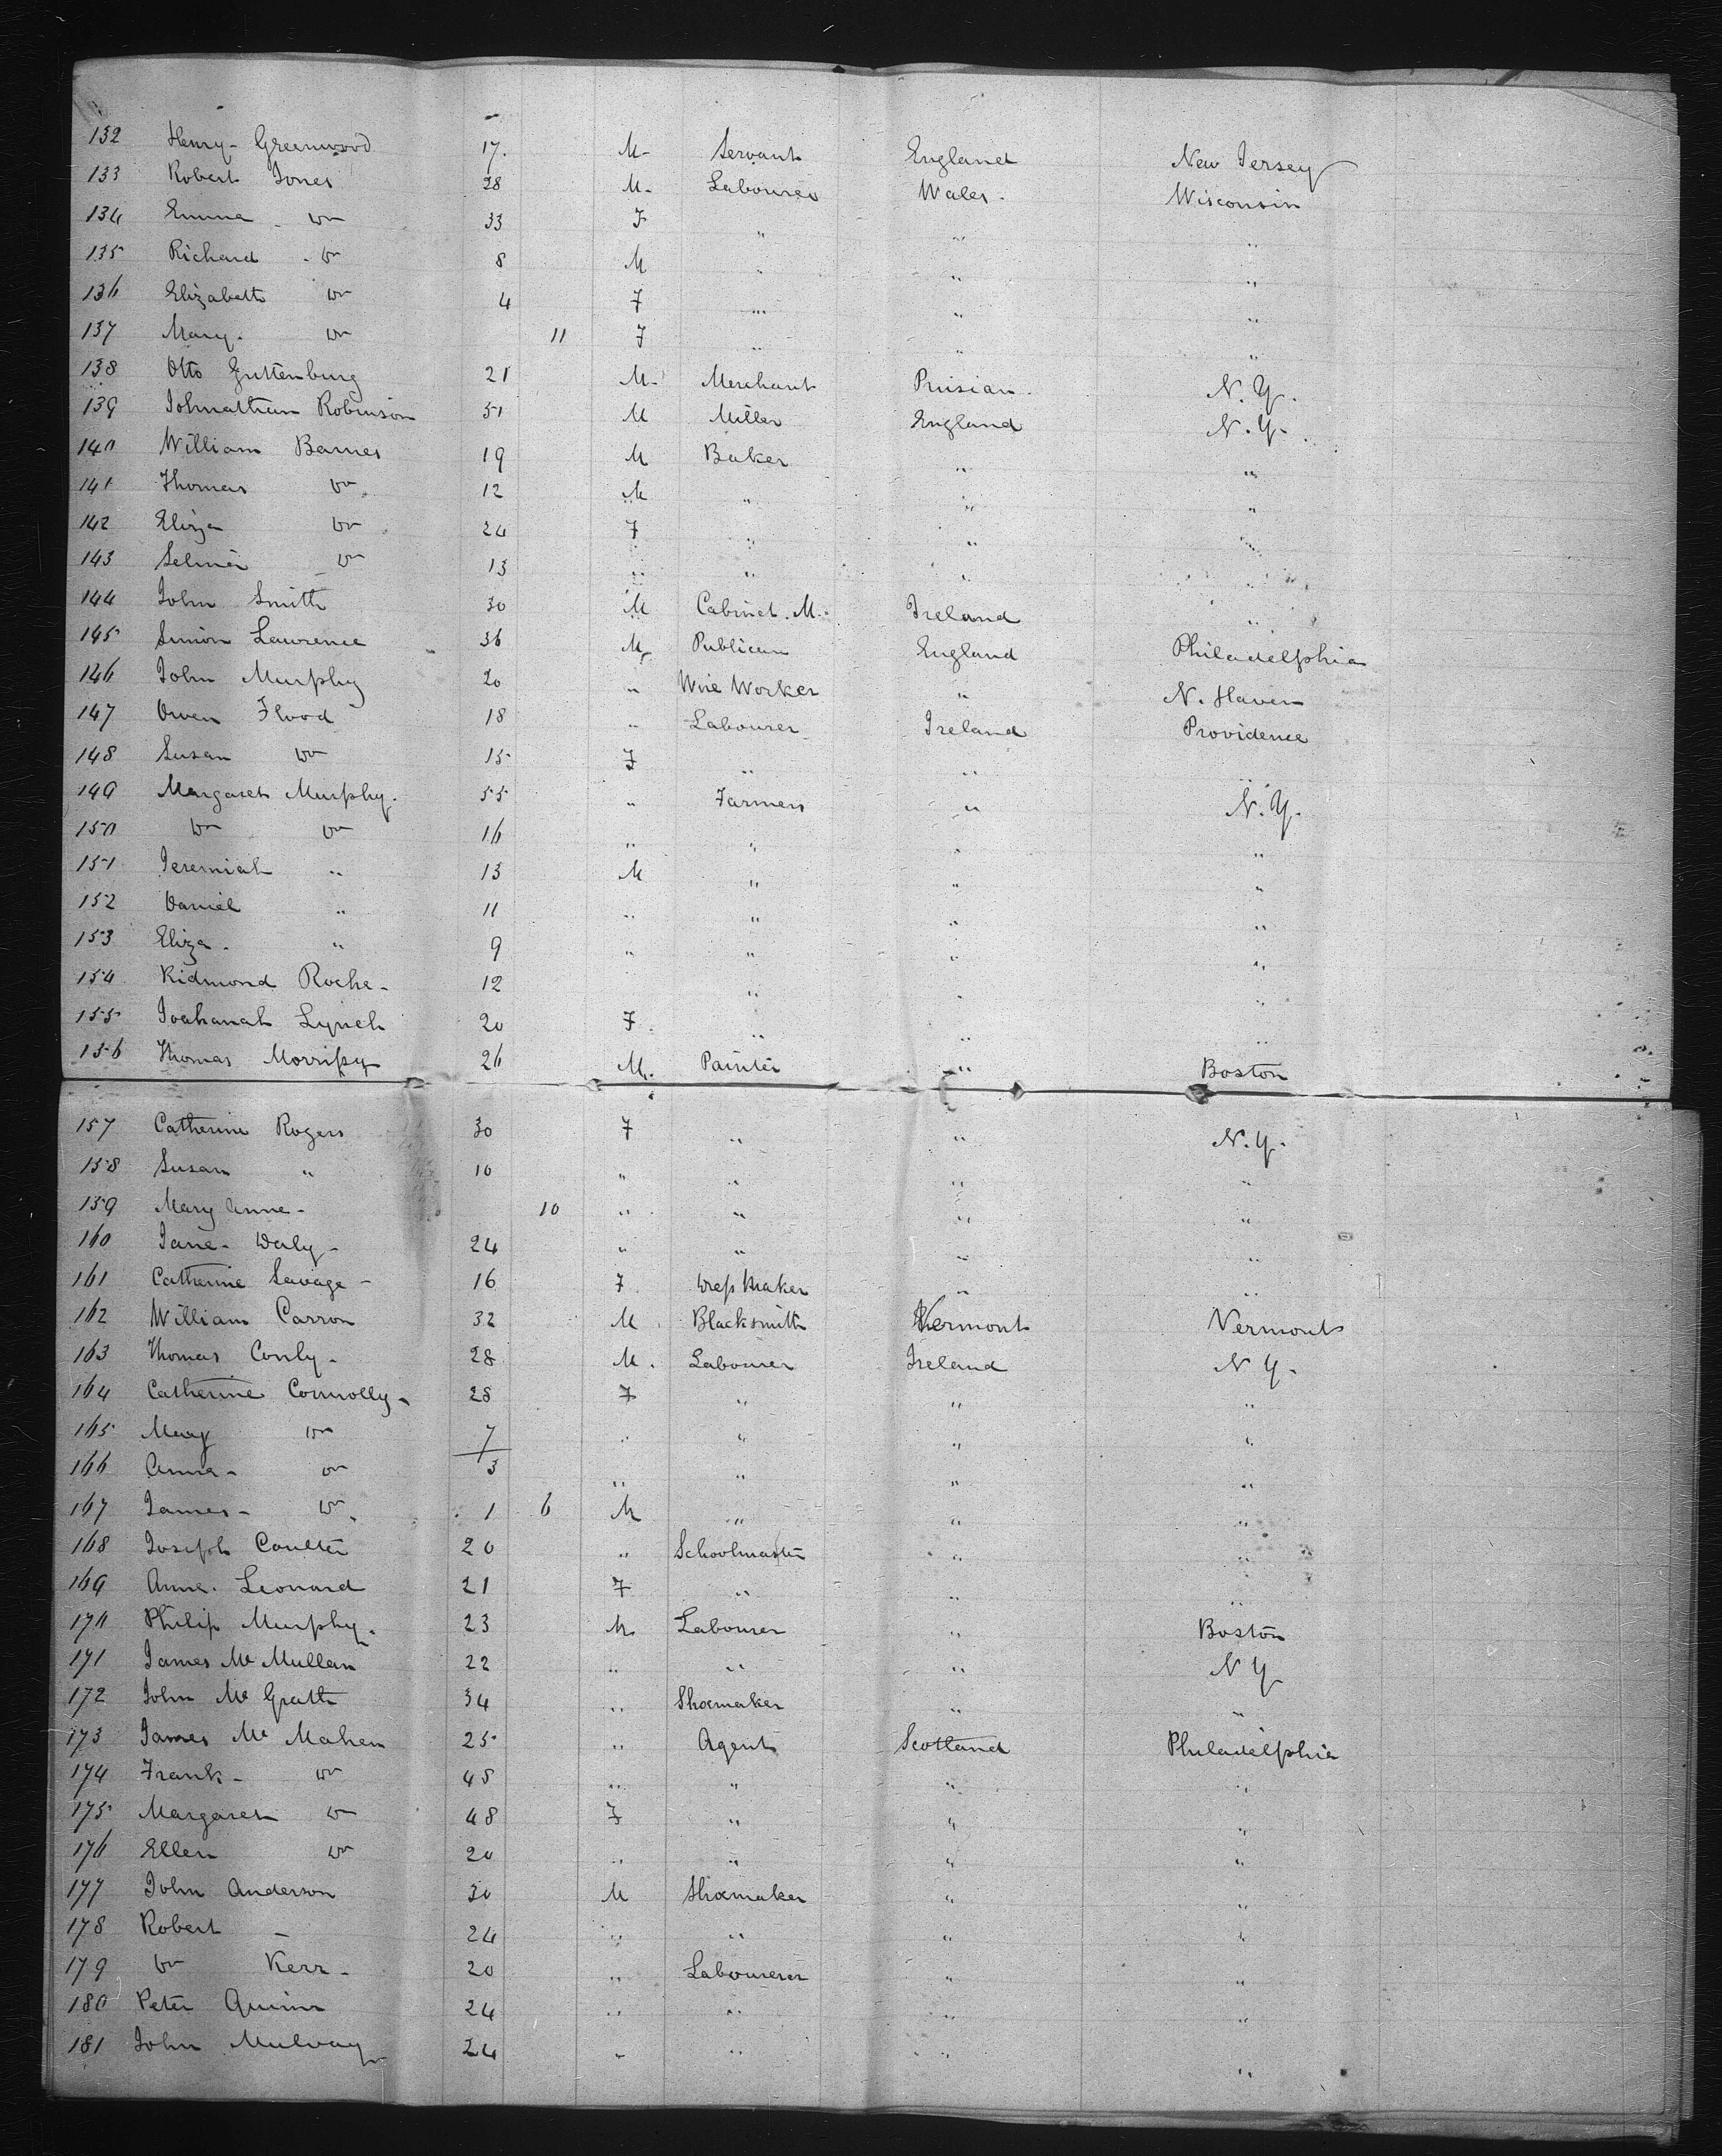 132 Henry Greenwood 17 M Servant England New Jersey
133 Robert Jones 28 M Labourer Wales Wisconsin
134 Emma Do 33 F " " "
135 Richard Do 8 M " " "
136 Elizabeth Do 4 F " " "
137 Mary Do 11 F " " "
138 Otto Guttenburg 21 M Merchant Prusian N.Y.
139 Johnathan Robinson 51 M Miller England N.Y.
140 William Barnes 19 M Baker " "
141 Thomas Do 12 M " " "
142 Eliza Do 24 F " " "
143 Selmer Do 13 " " " "
144 John Smith 30 M Cabinet. M. Ireland "
145 Simon Lawrence 36 M Publican England Philadelphia
146 John Murphy 20 " Wire Worker " N. Haven
147 Owen Flood 18 " Labourer Ireland Providence
148 Susan Do 15 F " " "
149 Margaret Murphy 55 " Farmers " N.Y.
150 Do Do 16 " " " "
151 Jeremiah " 13 M " " "
152 Daniel " 11 " " " "
153 Eliza " 9 " " " "
154 Ridmond Roche 12 " " "
155 Joahanah Lynch 20 F " " "
156 Thomas Morrissy 26 M. Painter " Boston
157 Catherine Rogers 30 F " " N.Y.
158 Susan " 10 " " " "
159 Mary Anne 10 " " " "
160 Jane Daly 24 " " " "
161 Catherine Savage 16 F Dress Maker " "
162 William Carron 32 M Blacksmith Vermont Vermont
163 Thomas Conly 28 M. Labourer Ireland N Y
164 Catherine Connolly 28 F " " "
165 Mary Do 7 " " " "
166 Anna Do 3 " " " "
167 James Do 1 6 M " " "
168 Joseph Coulter 20 " Schoolmaster " "
169 Anne Leonard 21 F " " "
170 Philip Murphy 23 M Labourer " Boston
171 James Mc Mullan 22 " " " N Y
172 John Mc Grath 34 " Shoemaker " "
173 James Mc Mahen 25 " Agent Scotland Philadelphia
174 Frank Do 48 " " " "
175 Margaret Do 48 F " " "
176 Ellen Do 20 " " " "
177 John Anderson 30 M Shoemaker " "
178 Robert 24 " " " "
179 Do Kerr 20 " Labourerer " "
180 Peter Quinn 24 " " " "
181 John Mulvay 24 " " " "